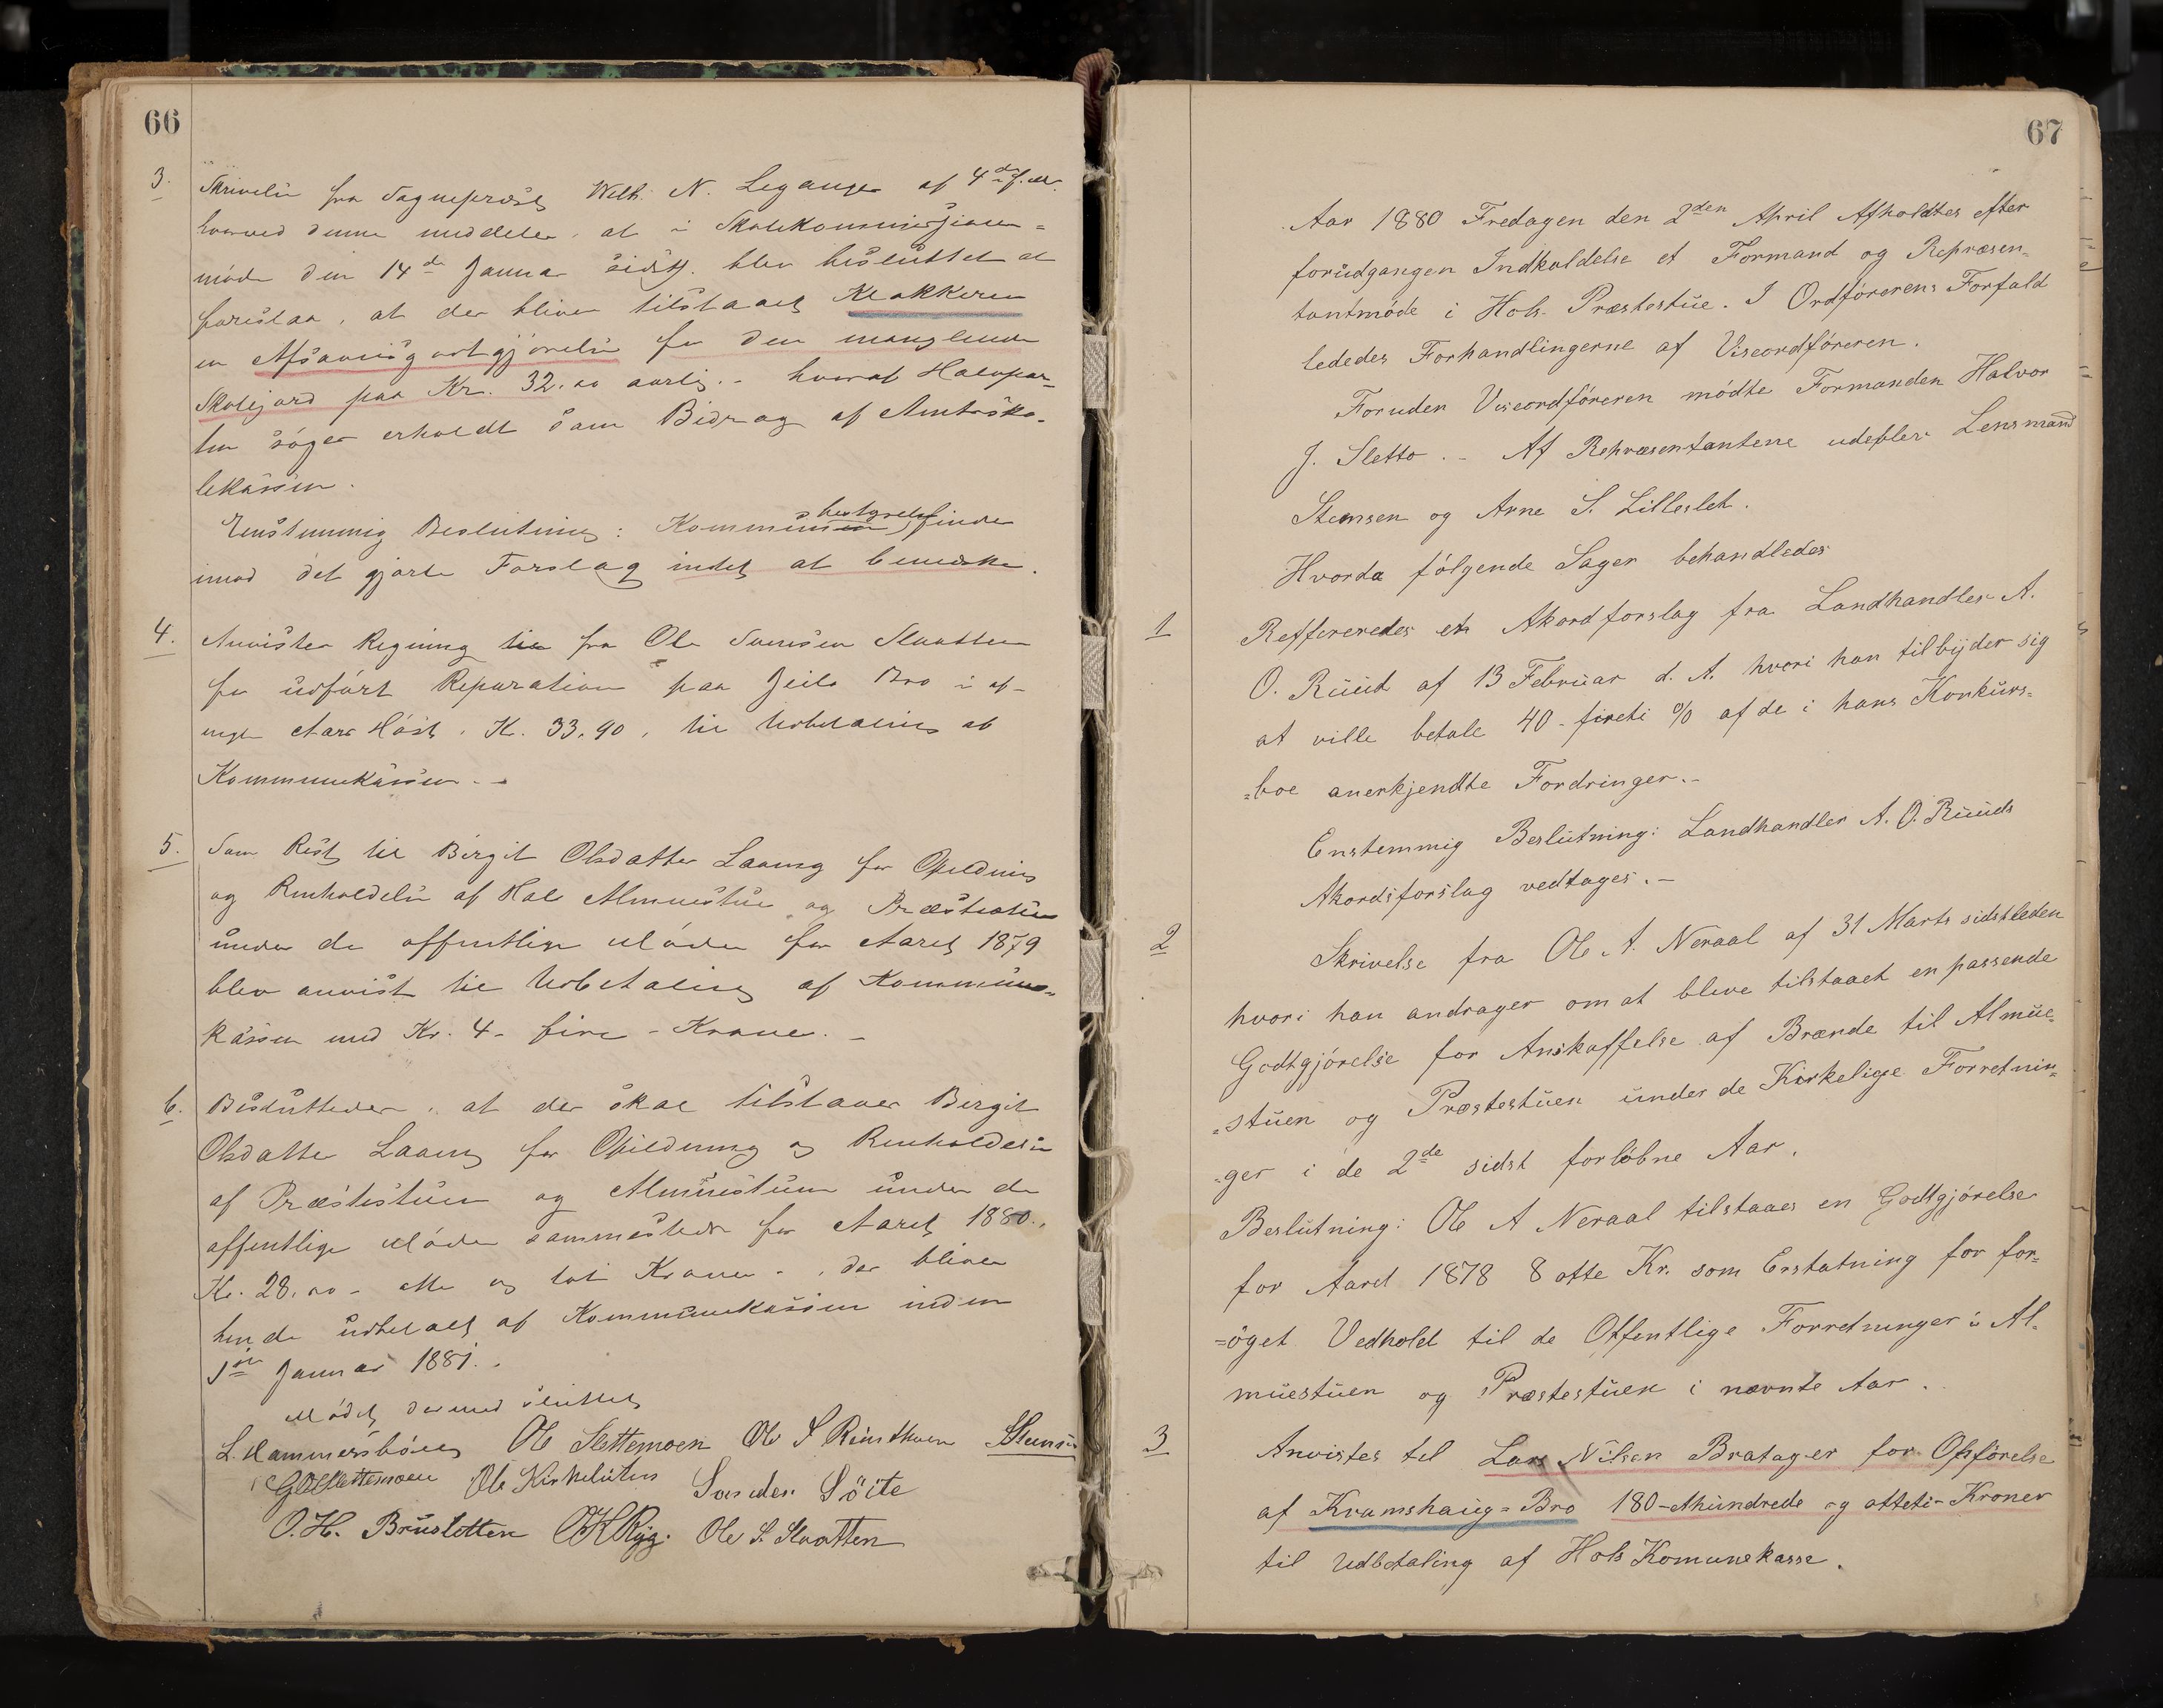 66
3. Skrivelse fra Sognepræst Wilh. N. Leganger af 4de f. M.
hvorved denne meddeler, at i Skolekommissionen=
møde den 14de Januar sidstl. blev besluttet at
foreslaa, at der bliver tilstaaet Klokkeren
en Afsavnsgodtgjørelse for den manglende
Skolejord paa Kr. 32.00 aarlig.- hvoraf Halvpar=
ten søges erholdt som Bidrag af Amtssko-
lekassen.
Enstemmig Beslutning: Kommunen bestyrelse finder
imod det gjorte Forslag intet at bemærke.
4. Anvistes Regning til fra Ole Svensen Slaatten
for udført Reparation paa Jeilo Bro i af-
vigte Aars Høst, K. 33.90, til Udbetaling af
Kommunekassen.-
5. Som Rest til Birgit Olsdatter Laaung for Opildning
og Renholdelse af Hols Almuestue og Præstestuen
under de offentlige Møder for Aaret 1879
blev anvist til Udbetaling af Kommune-
kassen med Kr. 4- fire - Kroner.-
6. Besluttedes, at der skal tilstaaes Birgit
Olsdatter Laaung for Opildning og Renholdelse
af Præstestuen og Almuestuen under de
offentlige Møder sammesteds for Aaret 1880.,
Kr. 28.00 - otte og tyve Kroner -, der bliver
hende udbetalt af Kommunekassen inden
1ste Januar 1881.
Mødet dermed sluttet
L. Hammersbøen Ole Slettemoen Ole S Reinthon SStensen
G O Slettemoen Ole Kirkeluten Sander Söite
O. H. Brusletten OKRyg. Ole S. Slaatten
67
Aar 1880 Fredagen den 2den April Afholdtes efter
forudgangen Indkaldelse et Formand og Repræsen=
tantmøde i Hols Præstestue. I Ordførerens Forfald
lededes Forhandlingerne af Viseordføreren.
Foruden Viseordføreren mødte Formanden Halvor
J. Sletto.- Af Repræsentantene udeblev Lensmand
Stensen og Arne S. Lilleslet.
Hvorda følgende Sager behandledes
1 Reffereredes et Akordforslag fra Landhandler A.
O. Ruud af 13 Februar d. A. hvori han tilbyder sig
at ville betale 40 - fireti % af de i hans Konkurs=
=boe anerkjendte Fordringer.-
Enstemmig Beslutning: Landhandler A. O. Ruuds
Akordsforslag vedtages.-
2 Skrivelse fra Ole A. Neraal af 31 Marts sidstleden
hvori han andrager om at blive tilstaaet en passende
Godtgjørelse for Anskaffelse af Brænde til Almue=
=stuen og Præstestuen under de Kirkelige Forretnin=
=ger i de 2de sidst forløbne Aar.
Beslutning: Ole A Neraal tilstaaes en Godtgjørelse
for Aaret 1878 8 otte Kr. som Erstatning for for=
=øget Vedhold til de Offentlige Forretninger i Al=
muestuen og Præstestuen i nævnte Aar.
3 Anvistes til Lars Nilsen Bratager for Opførelse
af Kramshaug=Bro 180-Ethundrede og otteti-Kroner
til Udbetaling af Hols Komunekasse.